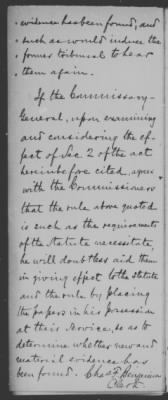 evidence has been found, and
such as would induce the
former tribunal to hear
them again.
If the Commissary-
General, upon examining
and considering the ef-
fect of Sec 2 of the act
hereinbefore cited, agrees
with the Commissioners
that the rule above quoted
is such as the requirements
of the Statute necessitate,
he will doubtless aid them
in giving effect to the statute
and the rule by placing
the papers in his possession
at their service, so as to
determine whether new and
material evidence has
been found. Chas F Benjamin
Clerk.